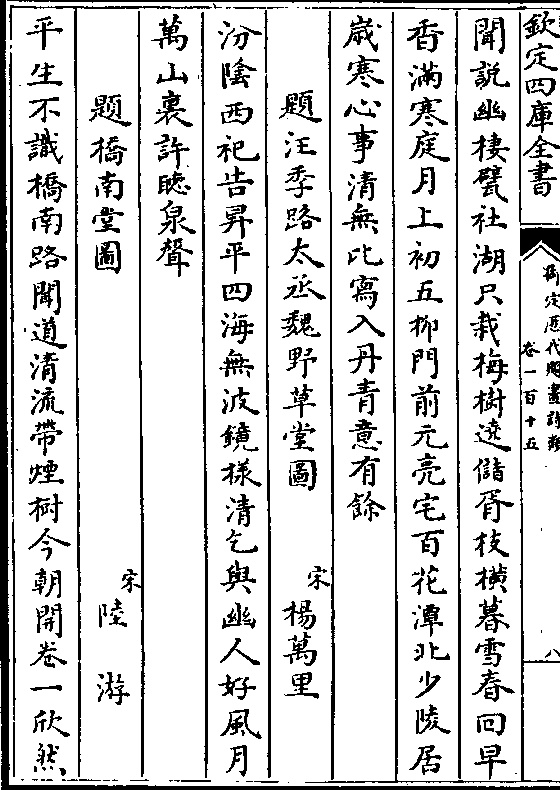 欽定四庫全書
御定歷代題畫詩類
卷一百十五
八
聞說幽棲甓社湖只栽梅樹遶儲胥枝横暮雪春回早
香滿寒庭月上初五栁門前元亮宅百花潭北少陵居
歳寒心事清無比寫入丹青意有餘
題汪季路太丞魏野草堂圖
宋楊萬里
汾陰西祀告昇平四海無波鏡様清乞與幽人好風月
萬山裏許聴泉聲
題橋南堂圖
宋陸游
平生不識橋南路聞道清流帶煙樹今朝開卷一欣然